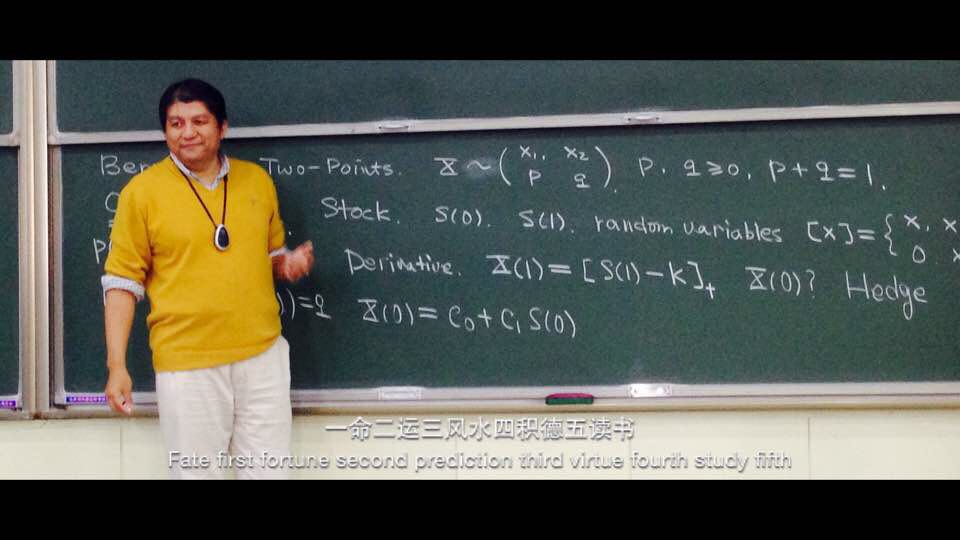 Two-Points. X ~ (x₁, x₂ / p q). p, q ≥ 0, p + q = 1.
Stock. S(0). S(1). random variables [x] = { x, x
0 x
Derivative. X(1) = [S(1) - K]₊ X(0)? Hedge
)) = q X(0) = C₀ + C₁ S(0)
一命二运三风水四积德五读书
Fate first fortune second prediction third virtue fourth study fifth